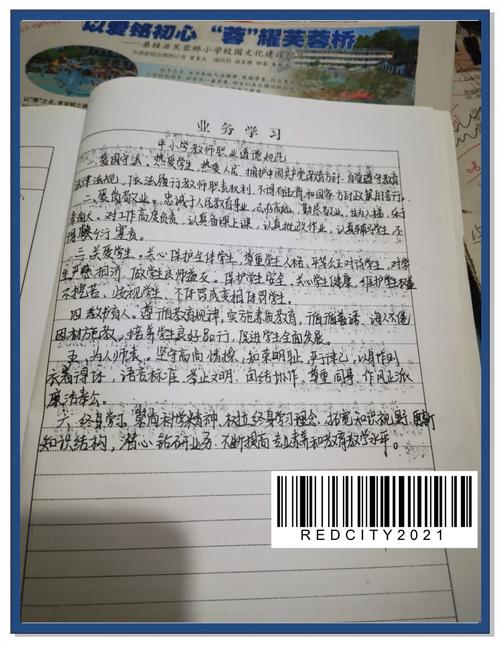 以爱铭初心 “蓉”耀芙蓉桥
——桑植县芙蓉桥小学校园文化建设
业务学习
中小学教师职业道德规范
一、爱国守法。热爱祖国，热爱人民，拥护中国共产党 教育方针，自觉遵守教育
法律法规，依法履行教师职责权利，不得有违背和国家方针政策的言行。
二、爱岗敬业。忠诚于人民教育事业，志存高远，勤恳敬业，甘为人梯，乐于
奉献。对工作高度负责，认真备课上课，认真批改作业，认真辅导学生，不
得敷衍塞责。
三、关爱学生。关心保护全体学生，尊重学生人格，平等公正对待学生，对学
生严慈相济，做学生良师益友。保护学生安全，关心学生健康，维护学生权益
不挖苦、歧视学生，不体罚或变相体罚学生。
四、教书育人。遵循教育规律，实施素质教育，循循善诱，诲人不倦
因材施教，培养学生良好品行，促进学生全面发展。
五、为人师表。坚守高尚情操，知荣明耻，严于律己，以身作则
衣着得体，语言标准，举止文明，团结协作，尊重同事，作风正派
廉洁奉公。
六、终身学习。崇尚科学精神，树立终身学习理念，拓宽知识视野，更新
知识结构，潜心钻研业务，不断提高专业素养和教育教学水平。
REDCITY2021